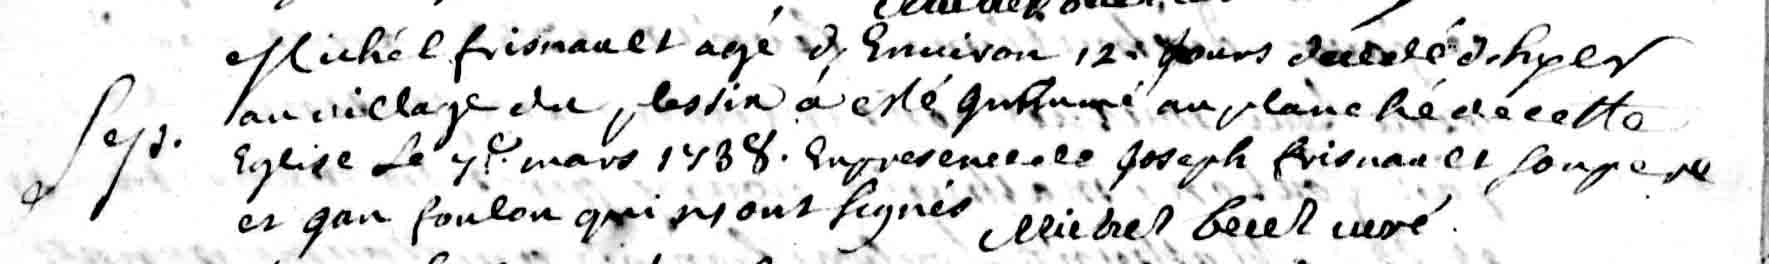 Michel frisnault agé d Environ 12 jours decedé d hyer
Sept. au village du plessix a esté Inhumé au planché de cette
Eglise Le 7e. mars 1738. En presence de Joseph frisnault son pere
et jan foulon qui ny ont signés Michel curé